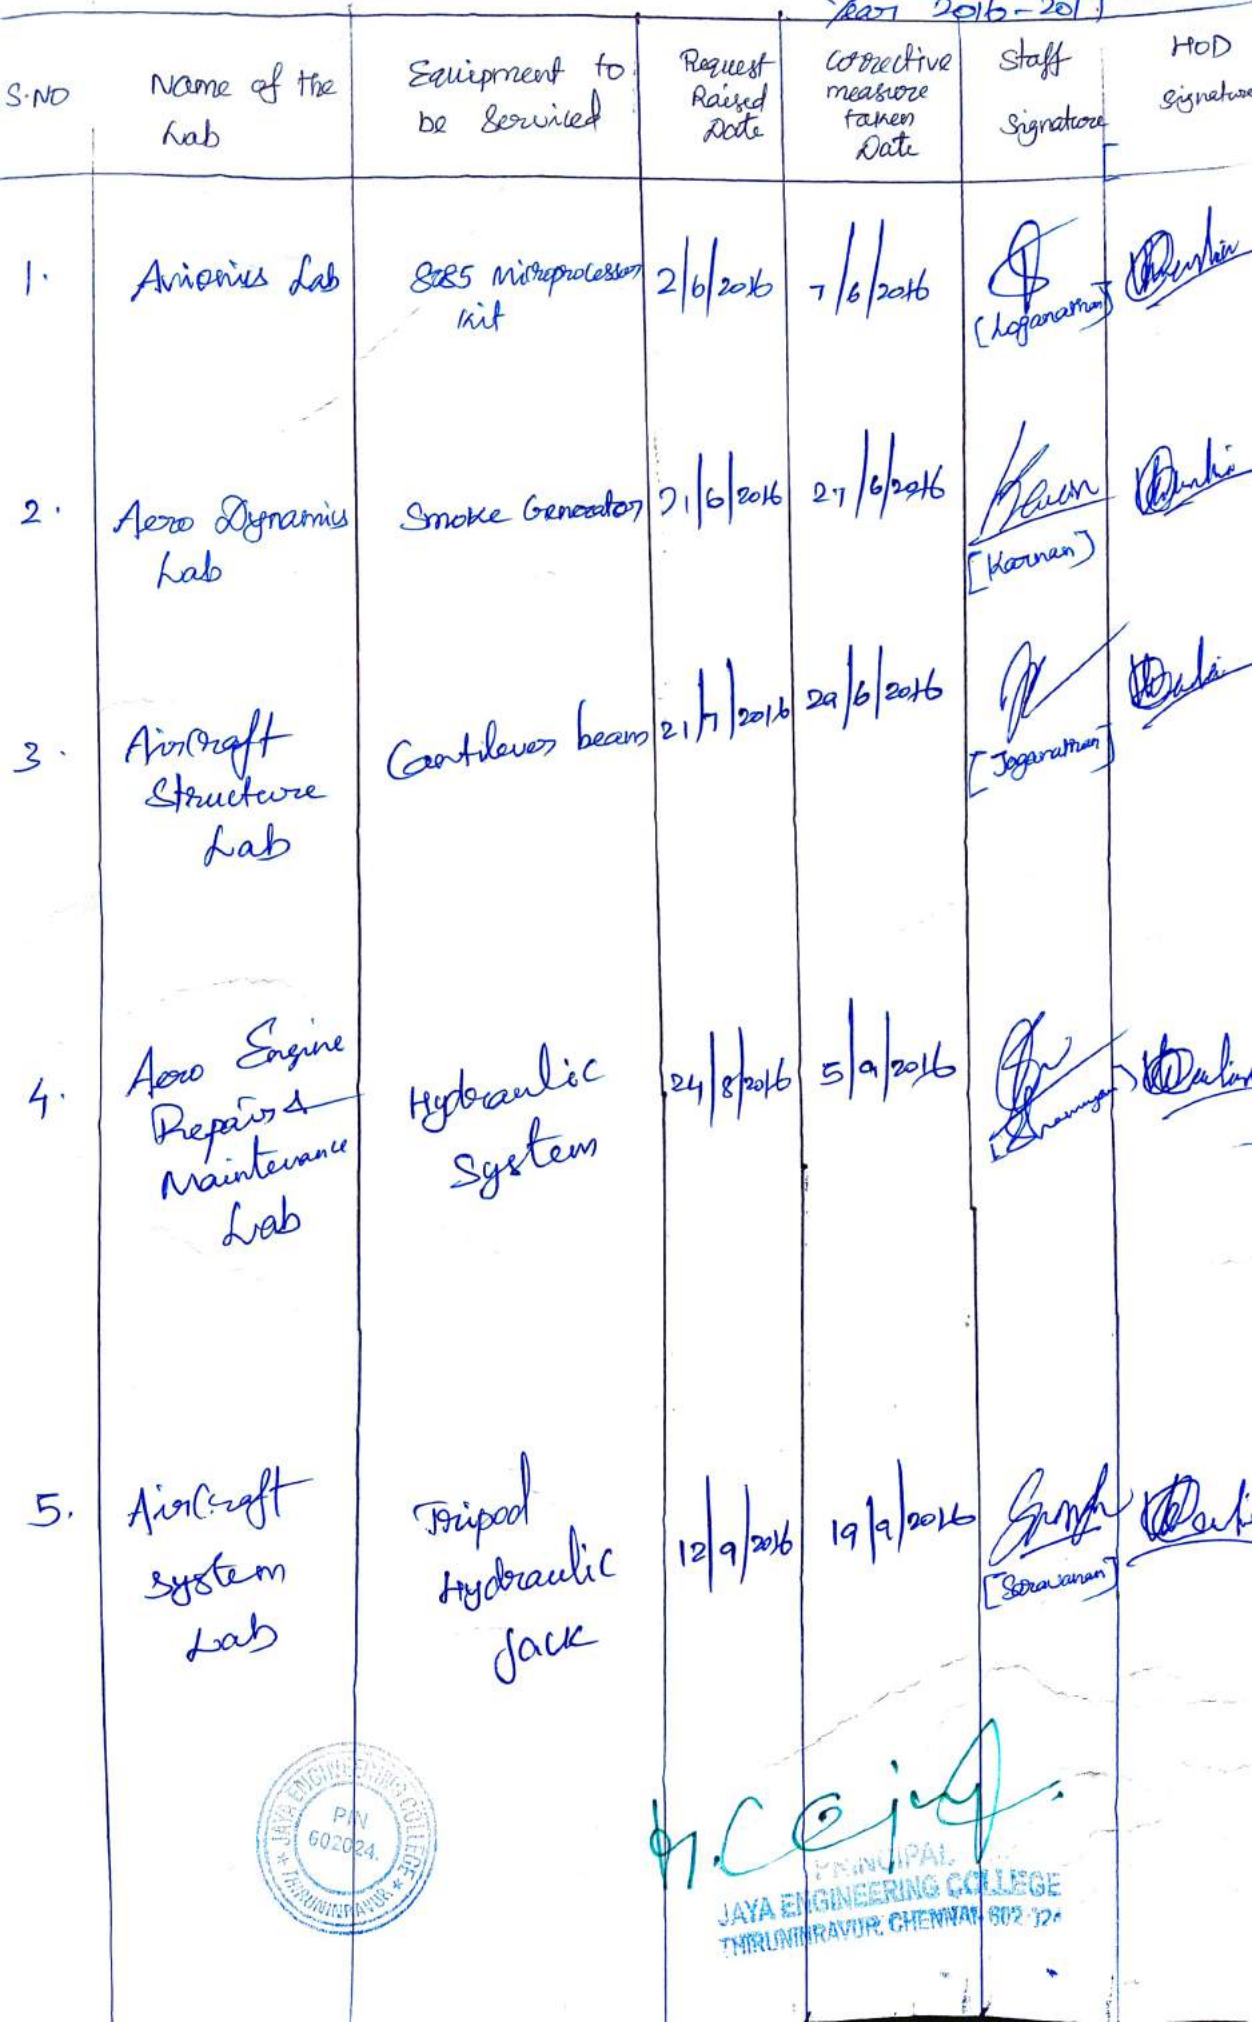 Year 2016-201
S.NO
Name of the
Lab
Equipment to
be Serviced
Request
Raised
Date
Corrective
measure
taken
Date
Staff
Signature
HOD
Signature
1.
Avionics Lab
8085 Microprocessor
Kit
2/6/2016
7/6/2016
[Loganathan]
2.
Aero Dynamics
Lab
Smoke Generator
21/6/2016
27/6/2016
[Karnan]
3.
Aircraft
Structure
Lab
Cantilever beam
21/7/2016
29/6/2016
[Joganathan]
4.
Aero Engine
Repair &
Maintenance
Lab
Hydraulic
System
24/8/2016
5/9/2016
5.
Aircraft
system
Lab
Tripod
Hydraulic
Jack
12/9/2016
19/9/2016
[Saravanan]
JAYA ENGINEERING COLLEGE
PIN
602024.
THIRUNINRAVUR
PRINCIPAL
JAYA ENGINEERING COLLEGE
THIRUNINRAVUR, CHENNAI-602 024